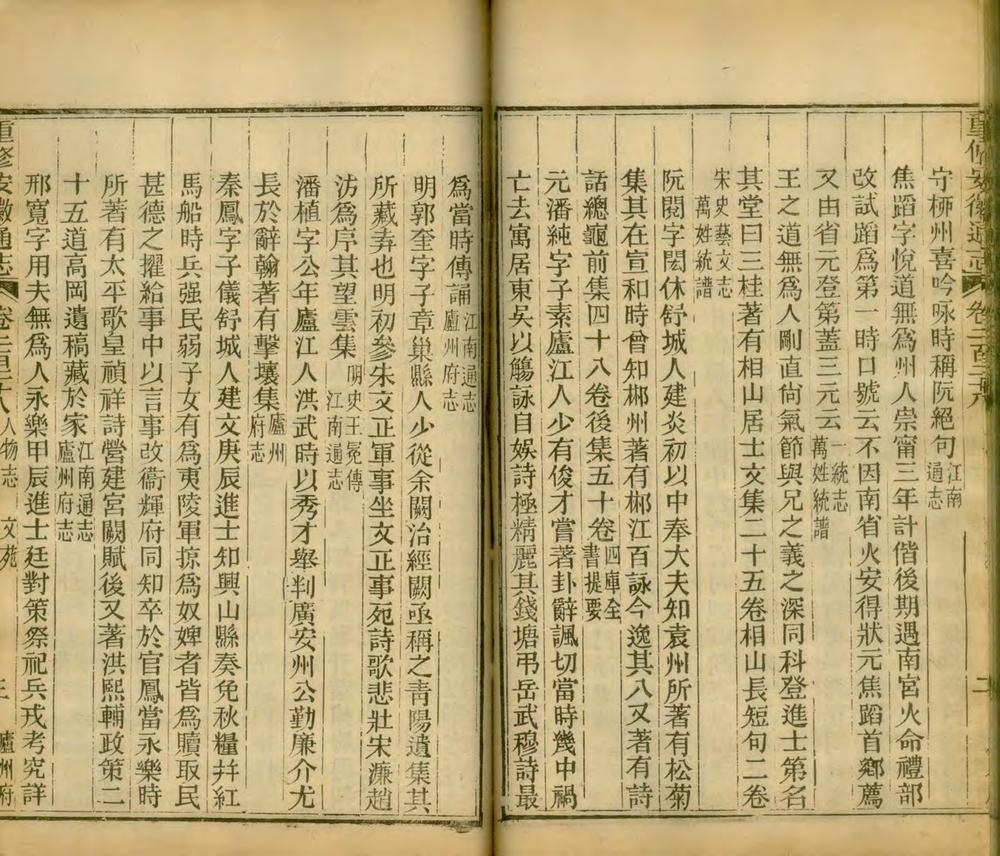 重修安徽通志 卷二百二十八 二
守柳州喜吟咏時稱阮絕句江南通志
焦蹈字悅道無為州人崇甯三年計偕後期遇南宮火命禮部
改試蹈為第一時口號云不因南省火安得狀元焦蹈首鄉薦
又由省元登第蓋三元云一統志萬姓統譜
王之道無為人剛直尙氣節與兄之義之深同科登進士第名
其堂曰三桂著有相山居士文集二十五卷相山長短句二卷
宋史藝文志萬姓統譜
阮閱字閎休舒城人建炎初以中奉大夫知袁州所著有松菊
集其在宣和時曾知郴州著有郴江百詠今逸其八又著有詩
話總龜前集四十八卷後集五十卷四庫全書提要
元潘純字子素廬江人少有俊才嘗著卦辭諷切當時幾中禍
亡去寓居東吳以觴詠自娛詩極精麗其錢塘弔岳武穆詩最
為當時傳誦江南通志廬州府志
明郭奎字子章巢縣人少從余闕治經闕亟稱之青陽遺集其
所藏弆也明初參朱文正軍事坐文正事死詩歌悲壯宋濂趙
汸為序其望雲集明史王冕傳江南通志
潘植字公年廬江人洪武時以秀才舉判廣安州公勤廉介尤
長於辭翰著有擊壤集廬州府志
秦鳳字子儀舒城人建文庚辰進士知興山縣奏免秋糧幷紅
馬船時兵强民弱子女有為夷陵軍掠為奴婢者皆為贖取民
甚德之擢給事中以言事改衞輝府同知卒於官鳳當永樂時
所著有太平歌皇禎祥詩營建宮闕賦後又著洪熙輔政策二
十五道高岡遺稿藏於家江南通志廬州府志
邢寬字用夫無為人永樂甲辰進士廷對策祭祀兵戎考究詳
重修安徽通志 卷二百二十八 人物志 文苑 三 廬州府